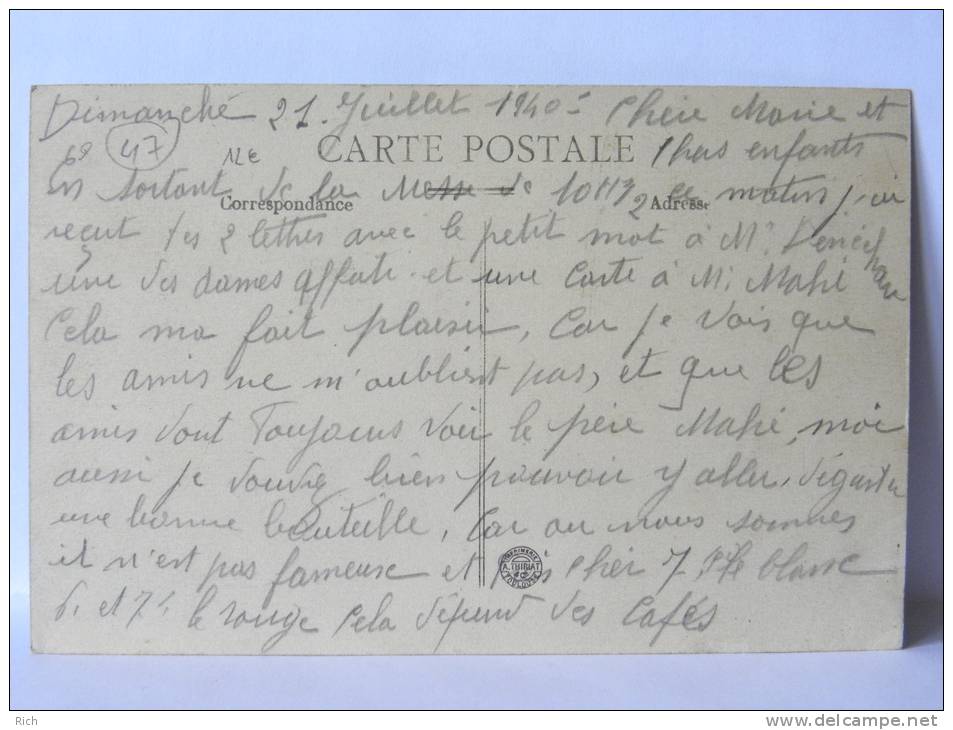 Dimanche 21. Juillet 1940 = Chère Marie et
68 47 12 € CARTE POSTALE Chers enfants
en sortant de la Messe de 10H1/2 ce matin j'ai
Correspondance Adresse
reçut tes 2 lettres avec le petit mot à Mr
une des dames et une carte à Mr Mahé
Cela ma fait plaisir, car je vois que
les amis ne m'oublient pas, et que les
amis vont Toujours voir le père Mahé, moi
aussi je voudrez bien pouvoir y aller, déguster
une bonne bouteille, car ou nous sommes
il n'est pas fameuse et cher 7 le blanc
IMPRIMERIE A. THIRIAT & Cie TOULOUSE
6, et 7f, le rouge Cela dépend des Cafés
Rich
www.delcampe.net